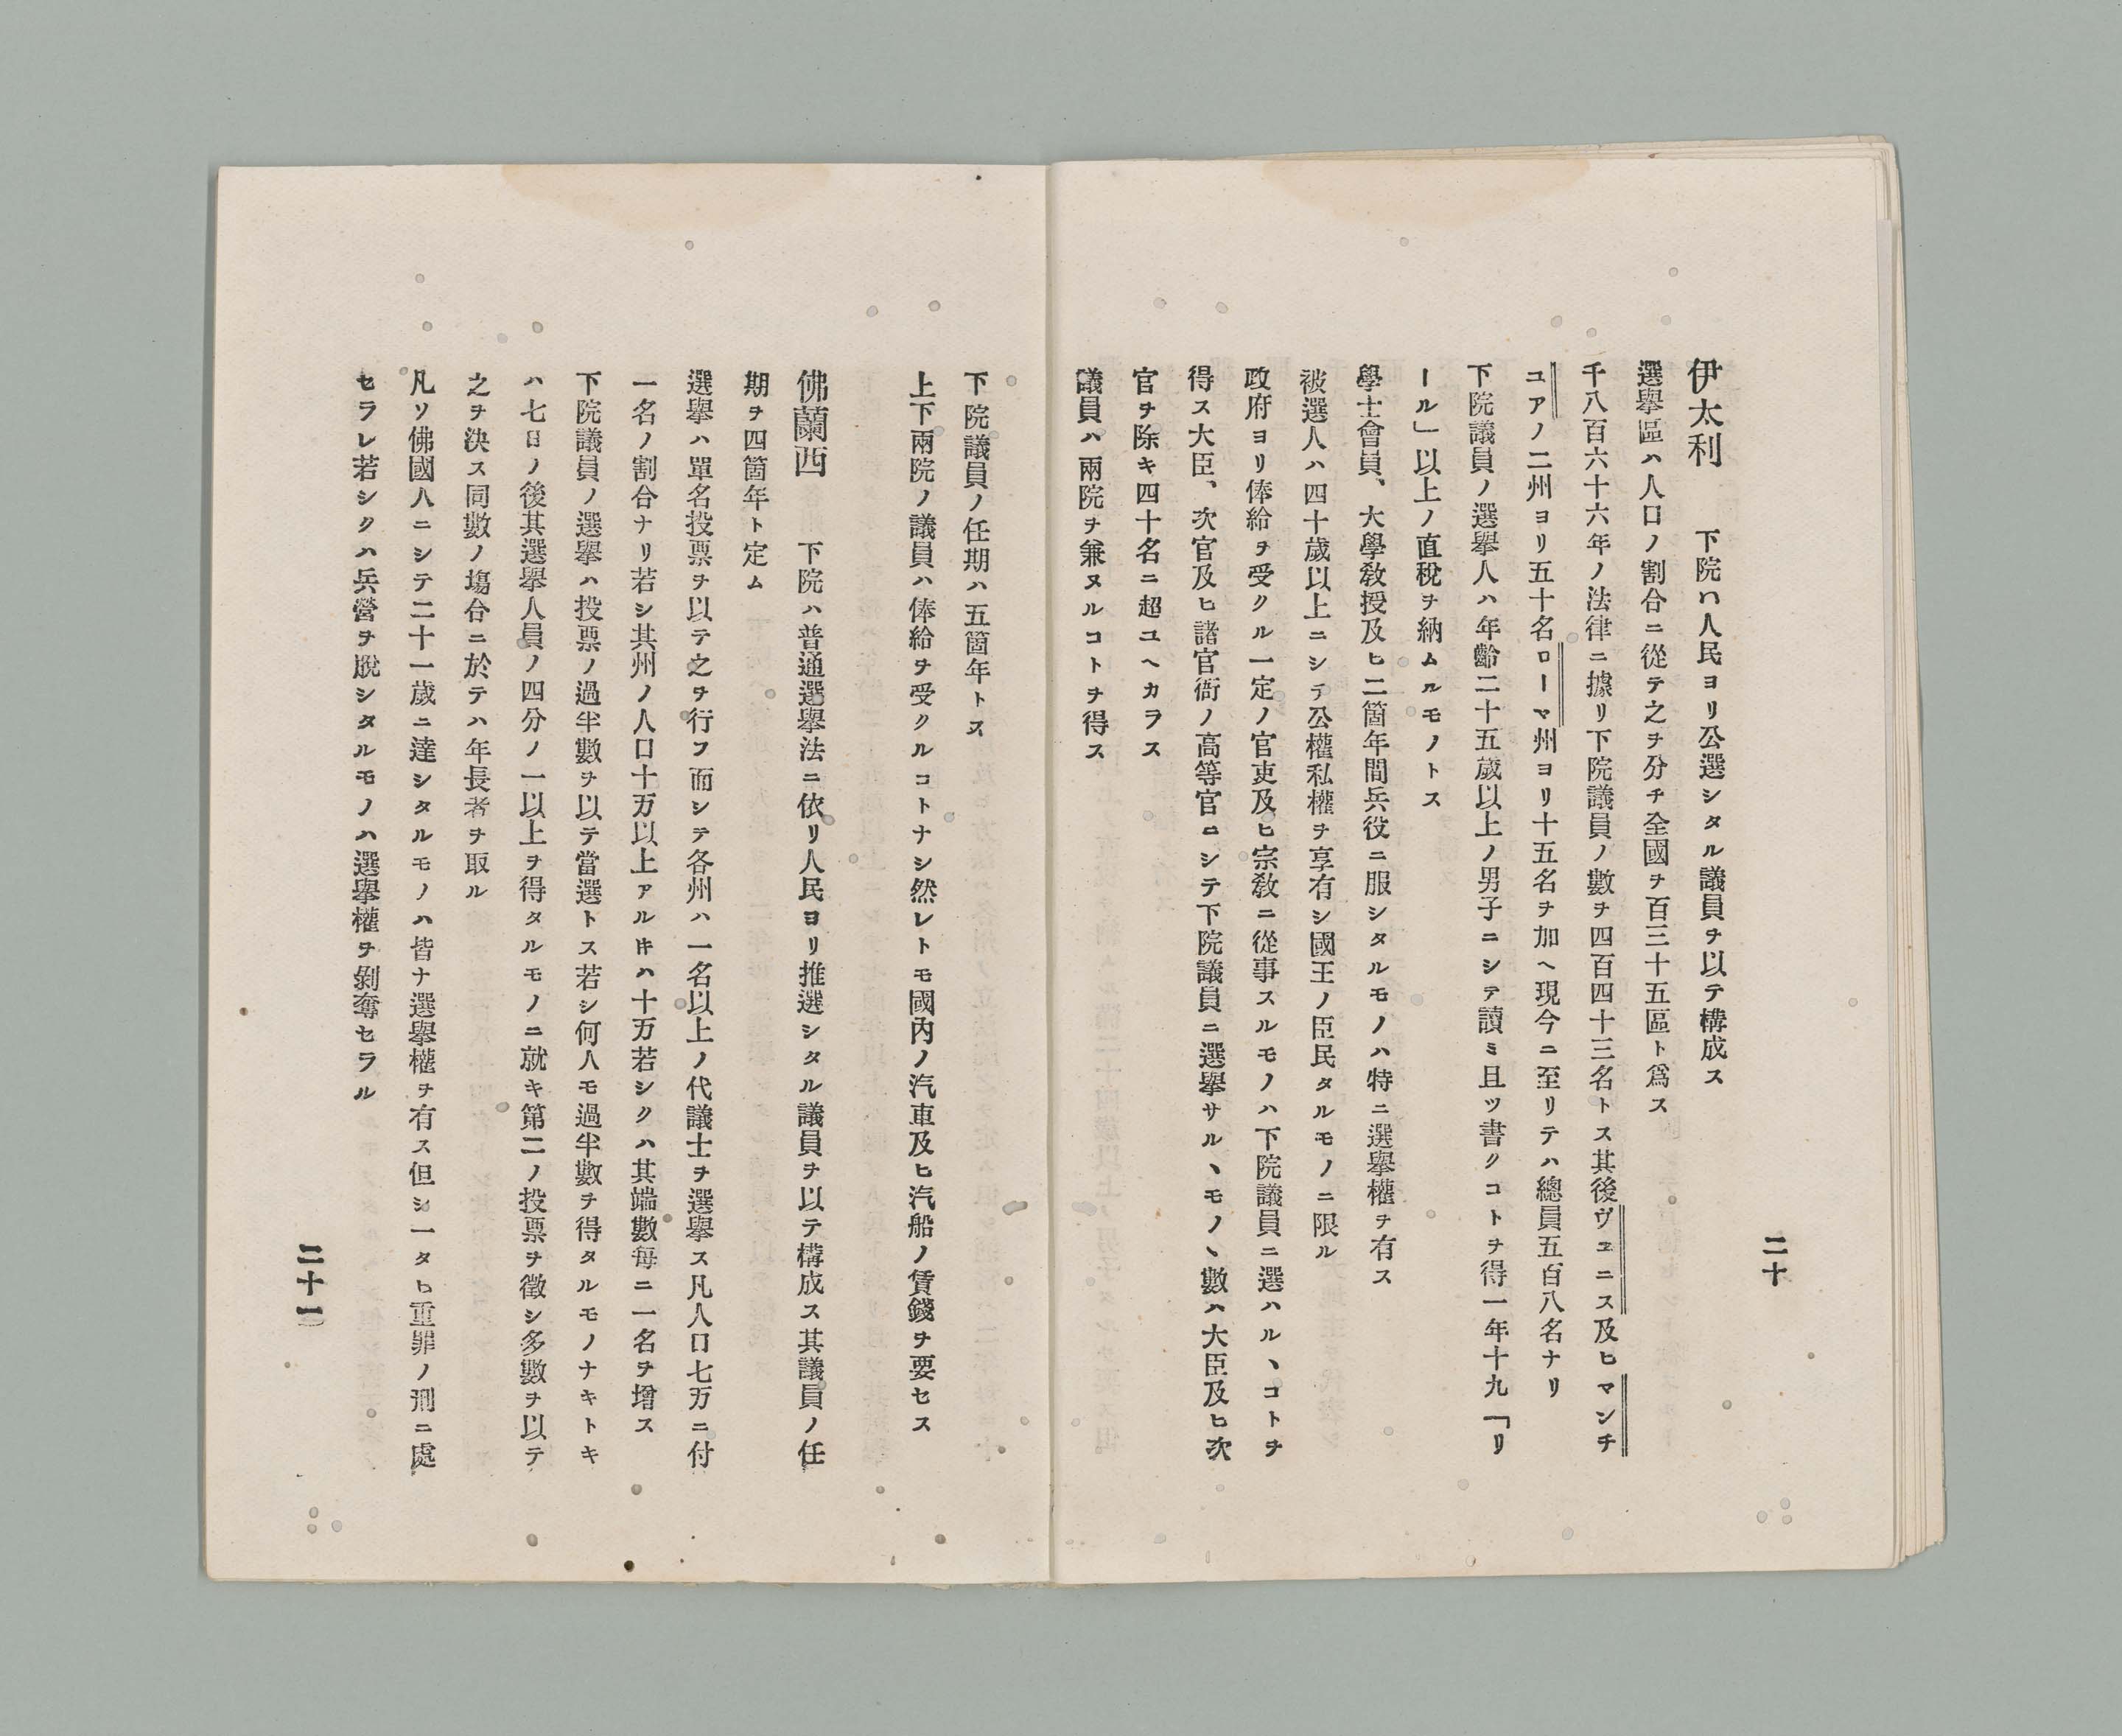 伊太利　下院ハ人民ヨリ公選シタル議員ヲ以テ構成ス
選擧區ハ人口ノ割合ニ從テ之ヲ分チ全國ヲ百三十五區ト爲ス
千八百六十六年ノ法律ニ據リ下院議員ノ數ヲ四百四十三名トス其後ヴェニス及ヒマンチ
ユアノ二州ヨリ五十名ローマ州ヨリ十五名ヲ加ヘ現今ニ至リテハ總員五百八名ナリ
下院議員ノ選擧人ハ年齡二十五歲以上ノ男子ニシテ讀ミ且ツ書クコトヲ得一年十九「リ
ール」以上ノ直稅ヲ納ムルモノトス
學士會員、大學敎授及ヒ二箇年間兵役ニ服シタルモノハ特ニ選擧權ヲ有ス
被選人ハ四十歲以上ニシテ公權私權ヲ享有シ國王ノ臣民タルモノニ限ル
政府ヨリ俸給ヲ受クル一定ノ官吏及ヒ宗敎ニ從事スルモノハ下院議員ニ選ハルヽコトヲ
得ス大臣、次官及ヒ諸官衙ノ高等官ニシテ下院議員ニ選擧サルヽモノヽ數ハ大臣及ヒ次
官ヲ除キ四十名ニ超ユヘカラス
議員ハ兩院ヲ兼ヌルコトヲ得ス
二十
下院議員ノ任期ハ五箇年トス
上下兩院ノ議員ハ俸給ヲ受クルコトナシ然レトモ國內ノ汽車及ヒ汽船ノ賃錢ヲ要セス
佛蘭西　下院ハ普通選擧法ニ依リ人民ヨリ推選シタル議員ヲ以テ構成ス其議員ノ任
期ヲ四箇年ト定ム
選擧ハ單名投票ヲ以テ之ヲ行フ而シテ各州ハ一名以上ノ代議士ヲ選擧ス凡人口七万ニ付
一名ノ割合ナリ若シ其州ノ人口十万以上アル𪜈ハ十万若シクハ其端數每ニ一名ヲ增ス
下院議員ノ選擧ハ投票ノ過半數ヲ以テ當選トス若シ何人モ過半數ヲ得タルモノナキトキ
ハ七日ノ後其選擧人員ノ四分ノ一以上ヲ得タルモノニ就キ第二ノ投票ヲ徵シ多數ヲ以テ
之ヲ決ス同數ノ塲合ニ於テハ年長者ヲ取ル
凡ソ佛國人ニシテ二十一歲ニ達シタルモノハ皆ナ選擧權ヲ有ス但シ一タヒ重罪ノ刑ニ處
セラレ若シクハ兵營ヲ脫シタルモノハ選擧權ヲ剝奪セラル
二十一